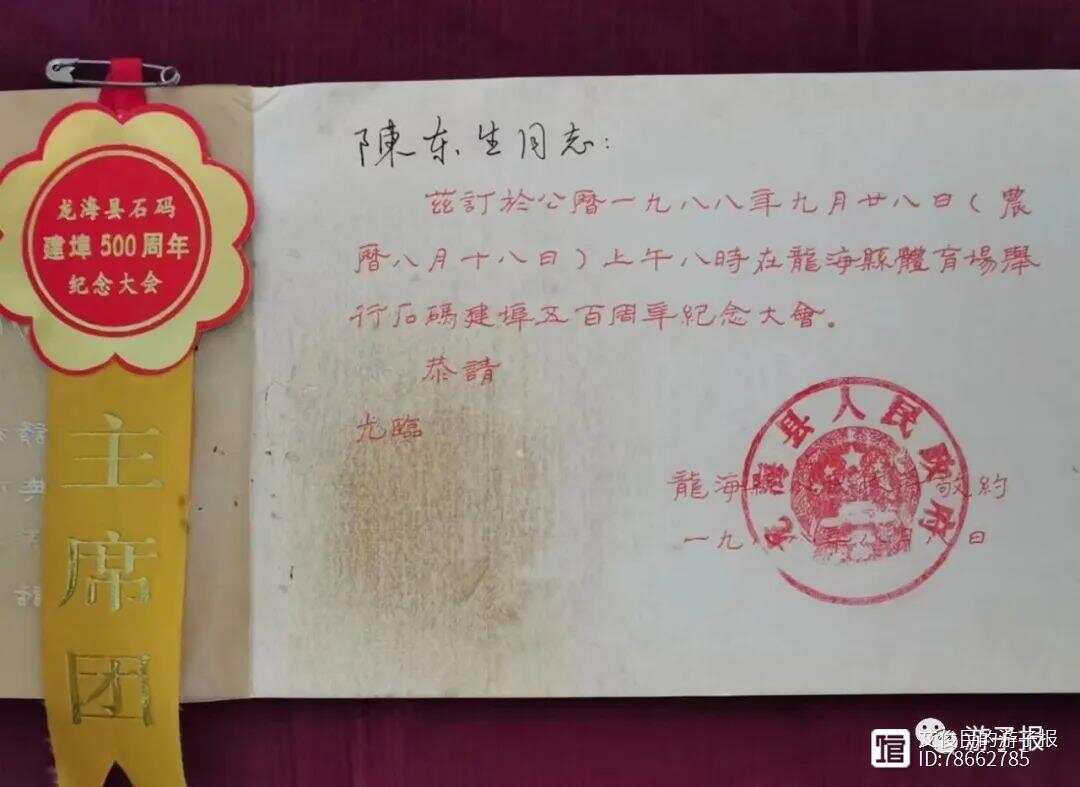 龙海县石码
建埠500周年
纪念大会
主席团
陳东生同志:
茲訂於公曆一九八八年九月廿八日(農
曆八月十八日)上午八時在龍海縣體育場舉
行石碼建埠五百周年紀念大會。
恭請
光臨
龍海縣人民政府敬約
一九八八年八月 日
龙海县人民政府
游子报
ID:78662785